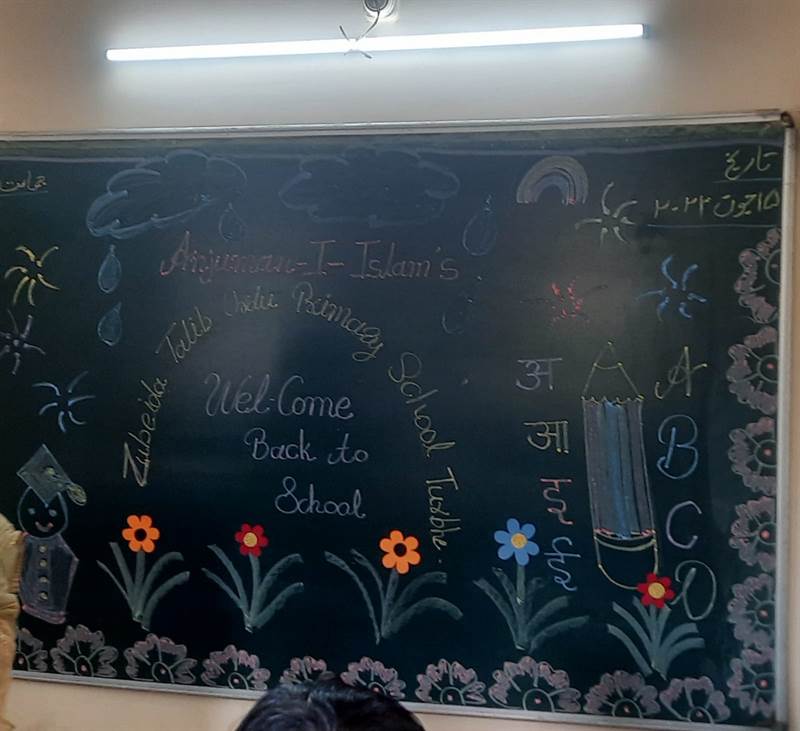 جماعت
تاریخ
۱۵ جون ۲۰۲۲
Anjuman-I-Islam's
Zubeida Talib Urdu Primary School Turbhe.
Wel-Come
Back to
School
अ
आ
इ
ई
A
B
C
D